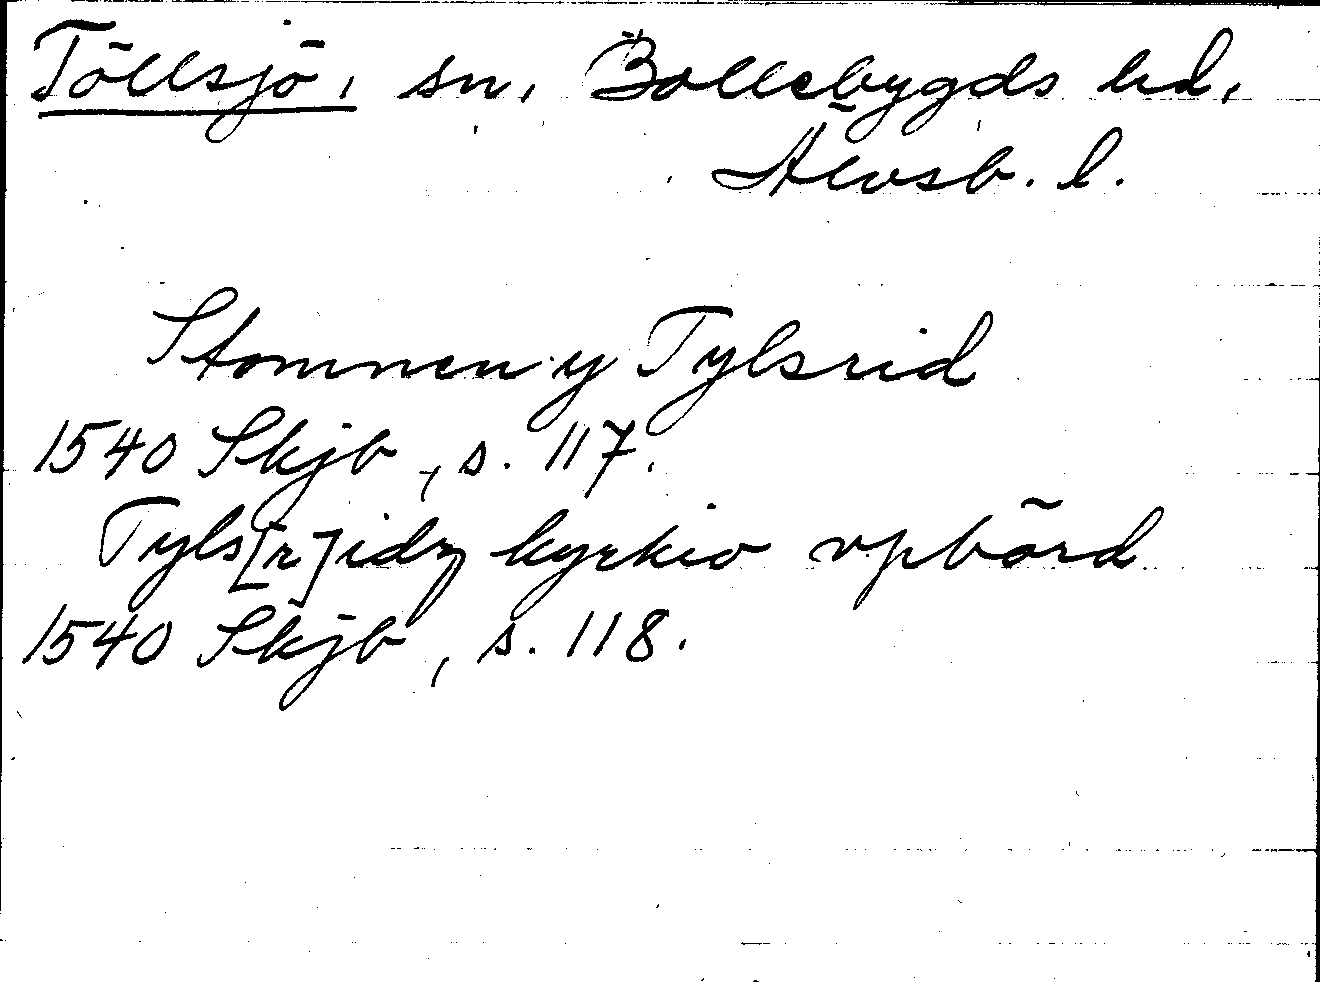 Töllsjö, sn, Bollebygds hd,
Älvsb. l.
Stommen y Tylsrid
1540 Skjb, s. 117.
Tyls[r]idz kyrkio vpbörd
1540 Skjb, s. 118.